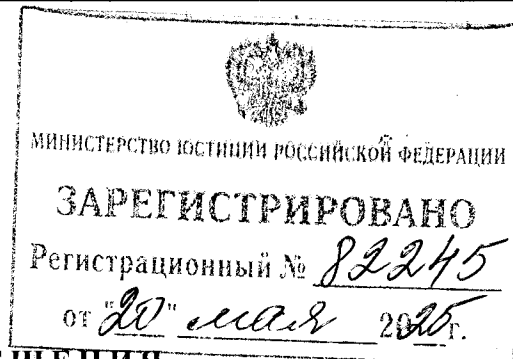 МИНИСТЕРСТВО ЮСТИЦИИ РОССИЙСКОЙ ФЕДЕРАЦИИ
ЗАРЕГИСТРИРОВАНО
Регистрационный № 82245
от "20" мая 2025г.